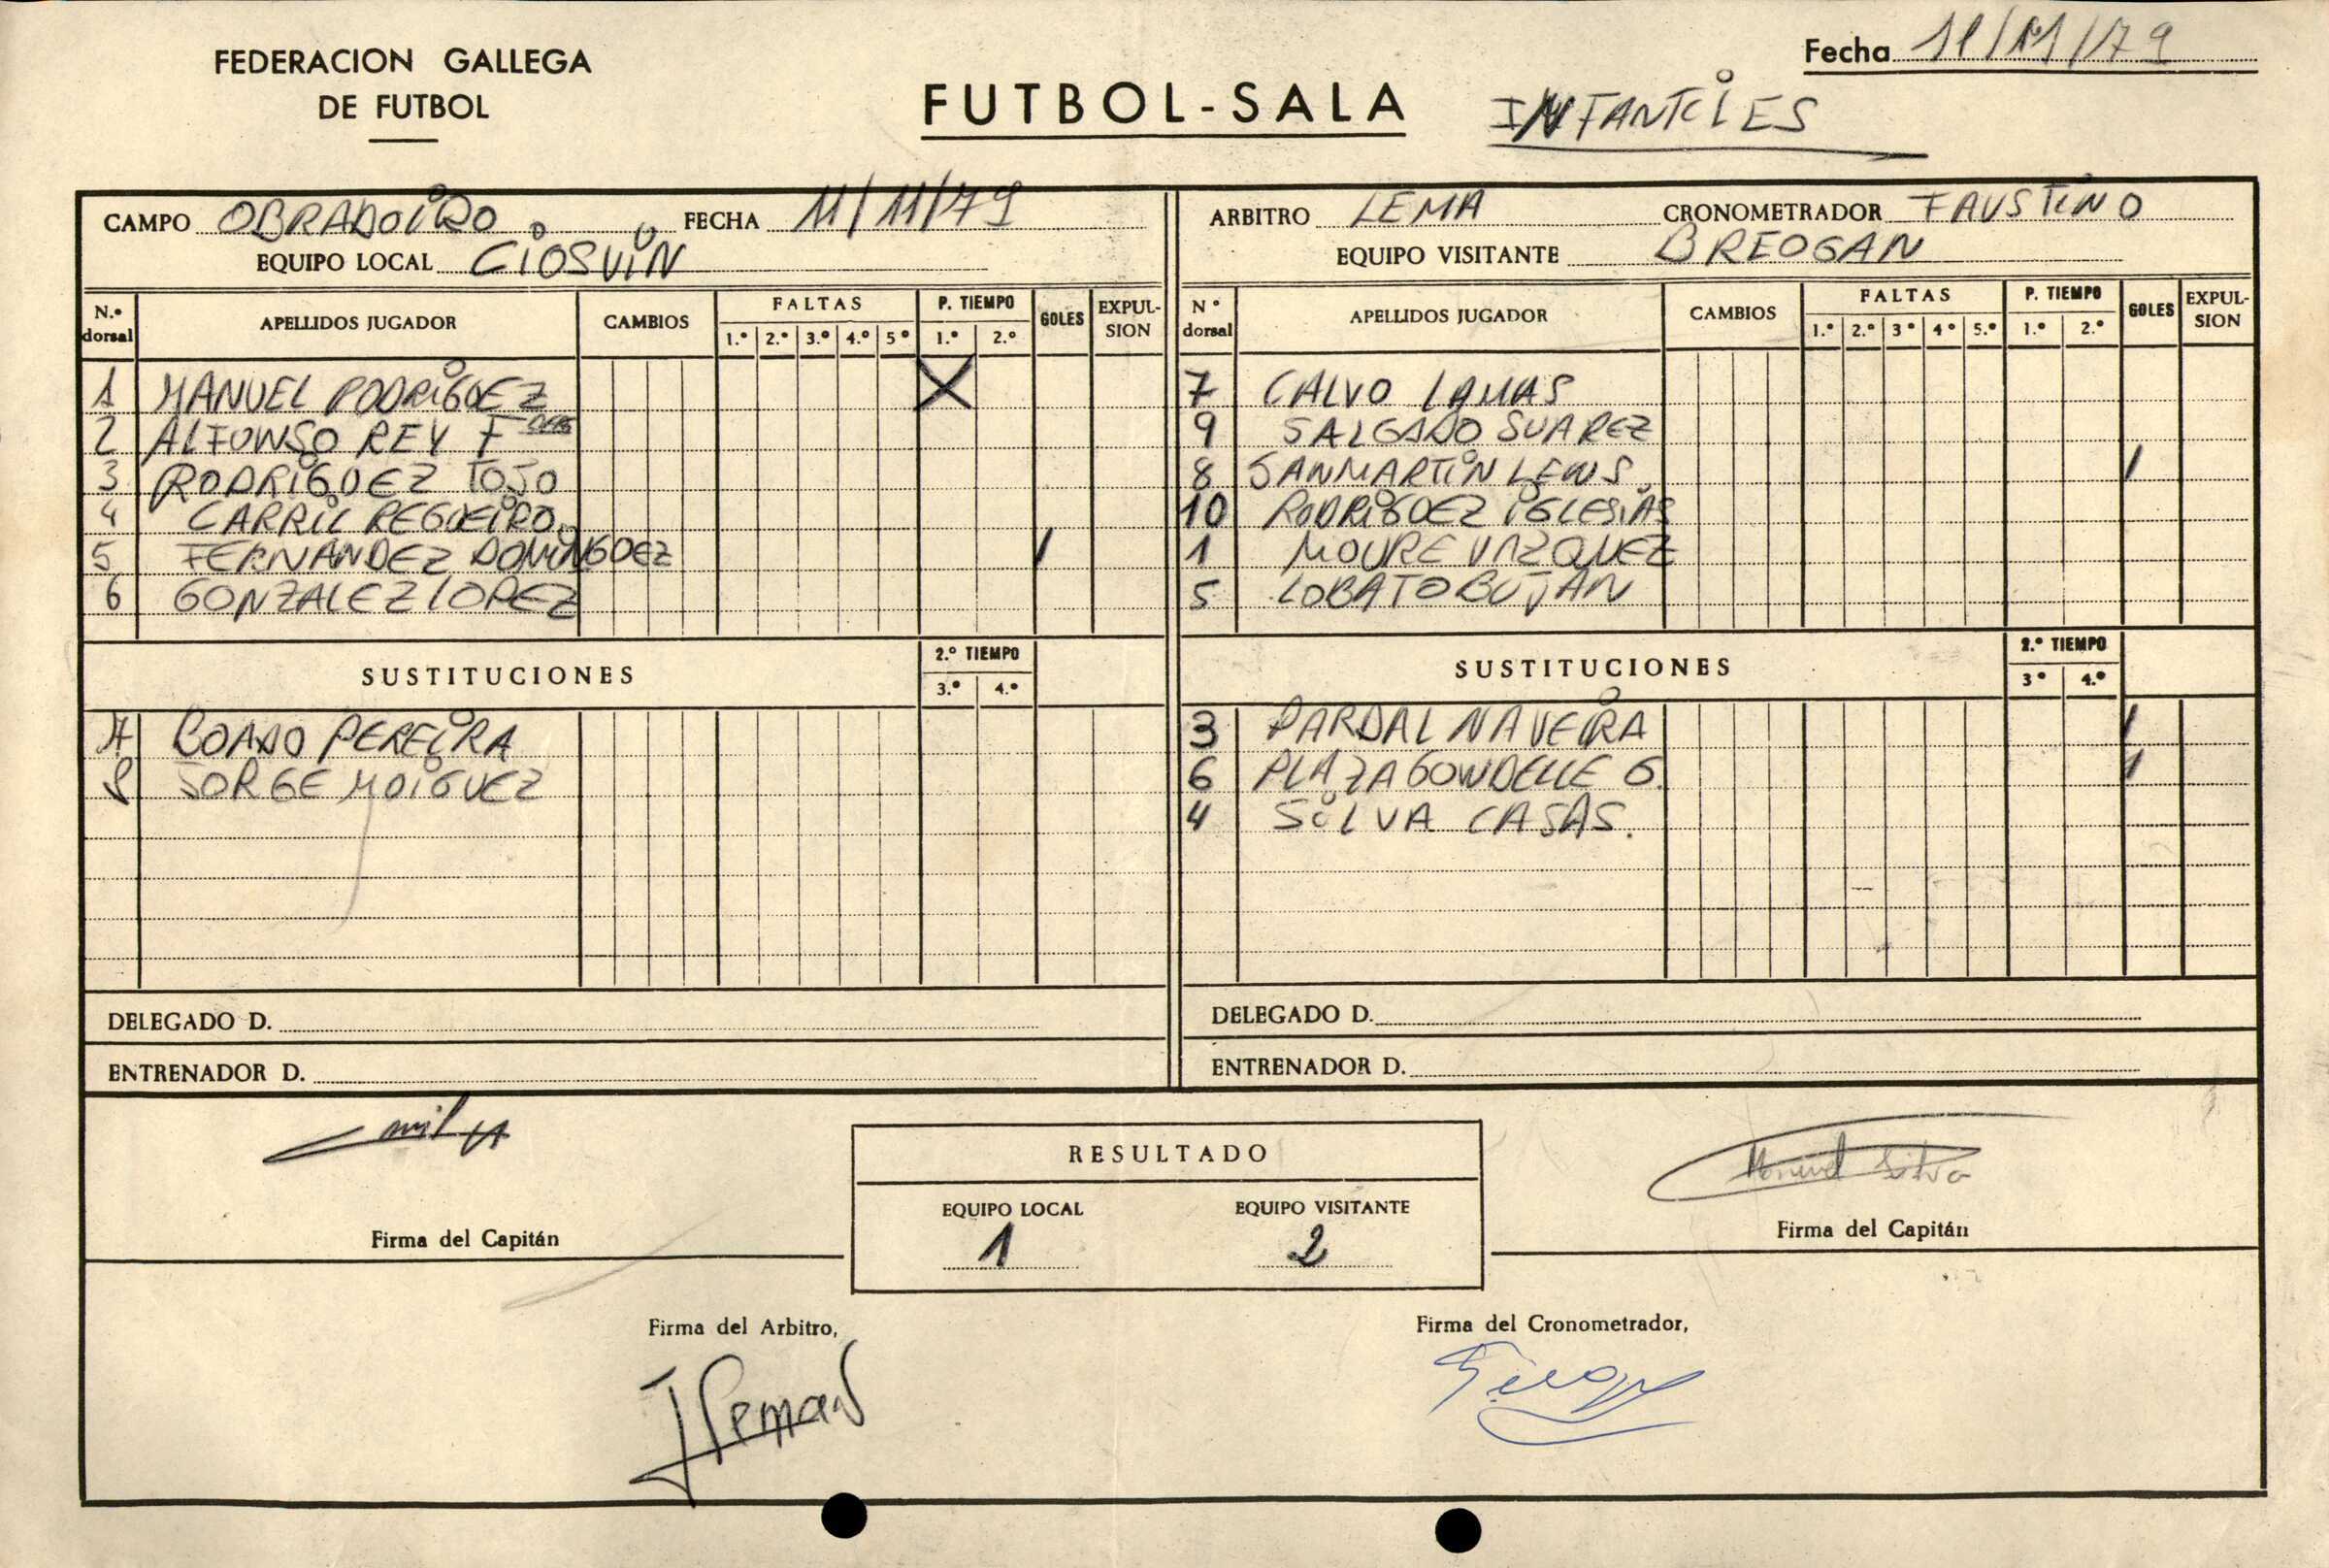 FEDERACION GALLEGA
DE FUTBOL
FUTBOL-SALA
INFANTILES
Fecha 11/11/79
CAMPO OBRADOIRO FECHA 11/11/79
EQUIPO LOCAL CIOSVIN
N.º dorsal APELLIDOS JUGADOR CAMBIOS FALTAS 1.º 2.º 3.º 4.º 5º P. TIEMPO 1.º 2.º GOLES EXPULSION
1 MANUEL RODRIGUEZ X
2 ALFONSO REY
3 RODRIGUEZ TOJO
4 CARRIL REGUEIRO
5 FERNANDEZ DOMINGUEZ /
6 GONZALEZ LOPEZ
SUSTITUCIONES 2.º TIEMPO 3.º 4.º
7 BOADO PEREIRA
8 JORGE
DELEGADO D.
ENTRENADOR D.
ARBITRO LEMA CRONOMETRADOR FAUSTINO
EQUIPO VISITANTE BREOGAN
Nº dorsal APELLIDOS JUGADOR CAMBIOS FALTAS 1.º 2.º 3º 4º 5.º P. TIEMPO 1.º 2.º GOLES EXPULSION
7 CALVO LAMAS
9 SALGADO SUAREZ
8 SANMARTIN /
10 RODRIGUEZ IGLESIAS
1 MOURE VAZQUEZ
5 LOBATO BUJAN
SUSTITUCIONES 2.º TIEMPO 3º 4.º
3 PARDAL NAVEIRA /
6 PLAZA GONDELLE G. /
4 SILVA CASAS.
DELEGADO D.
ENTRENADOR D.
Firma del Capitán
RESULTADO
EQUIPO LOCAL EQUIPO VISITANTE
1 2
Manuel Silva
Firma del Capitán
Firma del Arbitro,
Firma del Cronometrador,